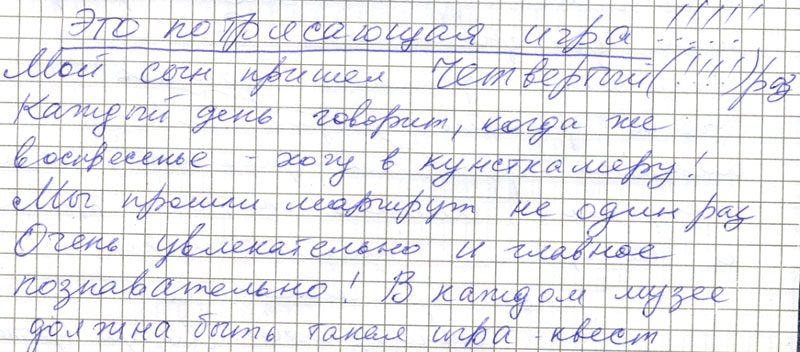 Это потрясающая игра !!!!!
Мой сын пришел четвертый (!!!) раз
Каждый день говорит, когда же
воскресенье - хочу в кунсткамеру!
Мы прошли маршрут не один раз
Очень увлекательно и главное
познавательно! В каждом музее
должна быть такая игра - квест